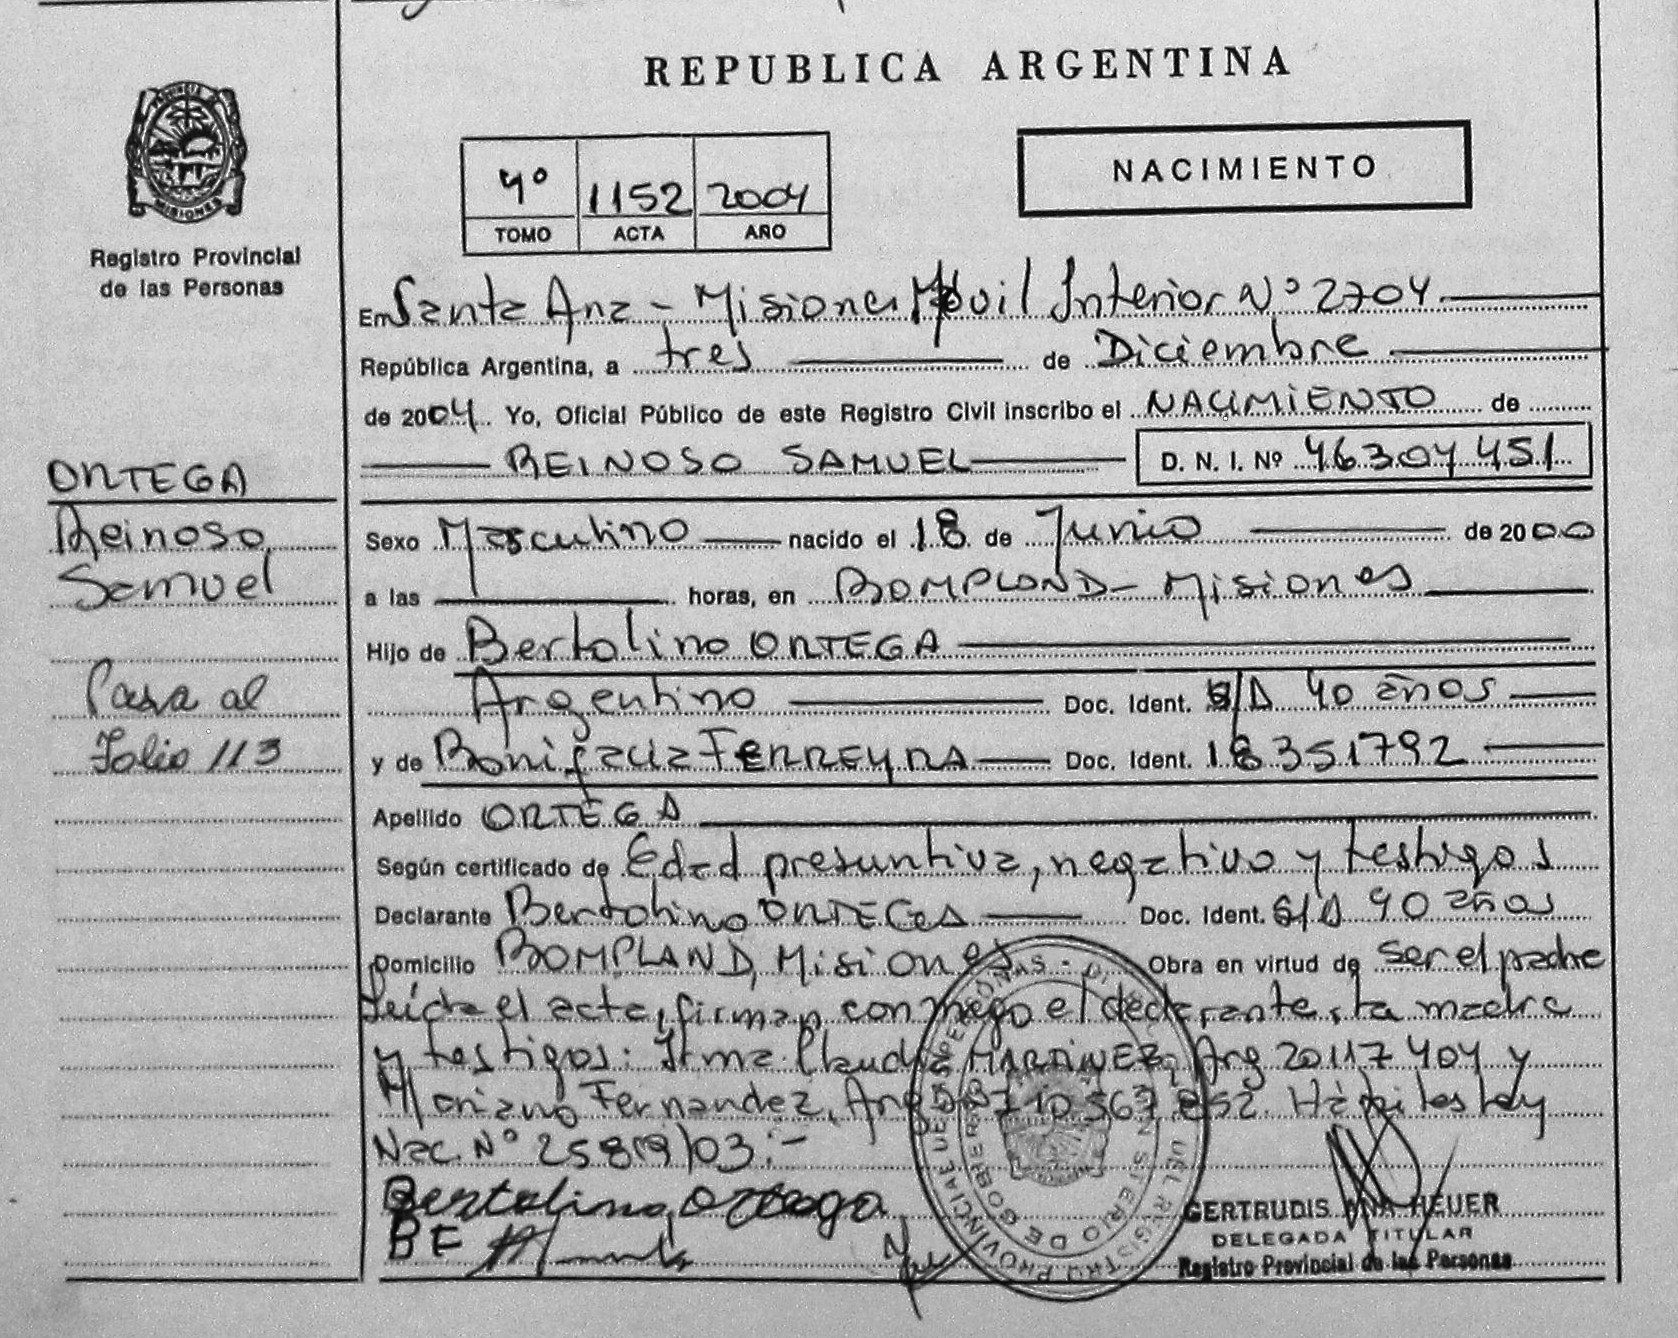 REPUBLICA ARGENTINA
PROVINCIA D
MISIONES
Registro Provincial
de las Personas
4º 1152 2004
TOMO ACTA AÑO
NACIMIENTO
En Santa Ana - Misiones Móvil Interior Nº 2704
República Argentina, a tres de Diciembre
de 2004 Yo, Oficial Público de este Registro Civil inscribo el NACIMIENTO de
REINOSO SAMUEL D. N. I. Nº 46304451
ORTEGA
Reinoso
Samuel
Pasa al
Folio 113
Sexo Masculino nacido el 18 de Junio de 2000
a las horas, en BOMPLAND - Misiones
Hijo de Bertolino ORTEGA
Argentino Doc. Ident. S/D 40 años
y de Bonifacia FERREYRA Doc. Ident. 18351792
Apellido ORTEGA
Según certificado de Edad presuntiva, negativo y testigos
Declarante Bertolino ORTEGA Doc. Ident. S/D 40 años
Domicilio BOMPLAND, Misiones Obra en virtud de ser el padre
Leída el acta, firman conmigo el declarante, la madre
y testigos: Irma Claudia MARTINEZ, Arg 20117404 y
Mariano Fernandez, Arg DNI 10567852.
Nac. Nº 25819/03:-
Bertolino Ortega
BF
GERTRUDIS ANA HEUER
DELEGADA TITULAR
Registro Provincial de las Personas